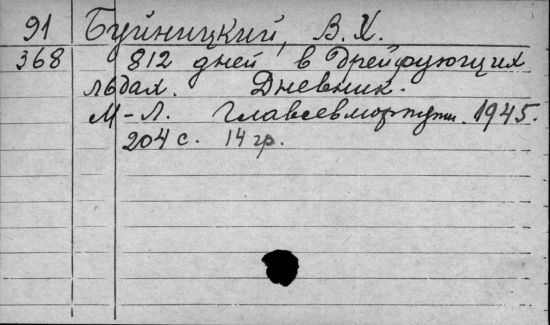 91 Буйницкий, В. Х.
368 812 дней в дрейфующих
льдах. Дневник.
М-Л. Главсевморпути. 1945.
204 с. 14 гр.